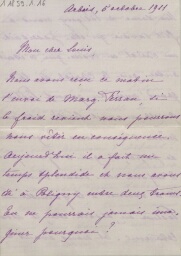 1 M 39.1.16
Arbois, 5 octobre 1911
Mon cher Louis
Nous avons reçu ce matin
l'envoi de Marg Perran, si
le froid revient nous pourrons
nous vêtir en conséquence.
Aujourd'hui il a fait un
temps splendide et nous avons
été à Poligny entre deux trains
Tu ne pourrais jamais ima-
giner pourquoi ?